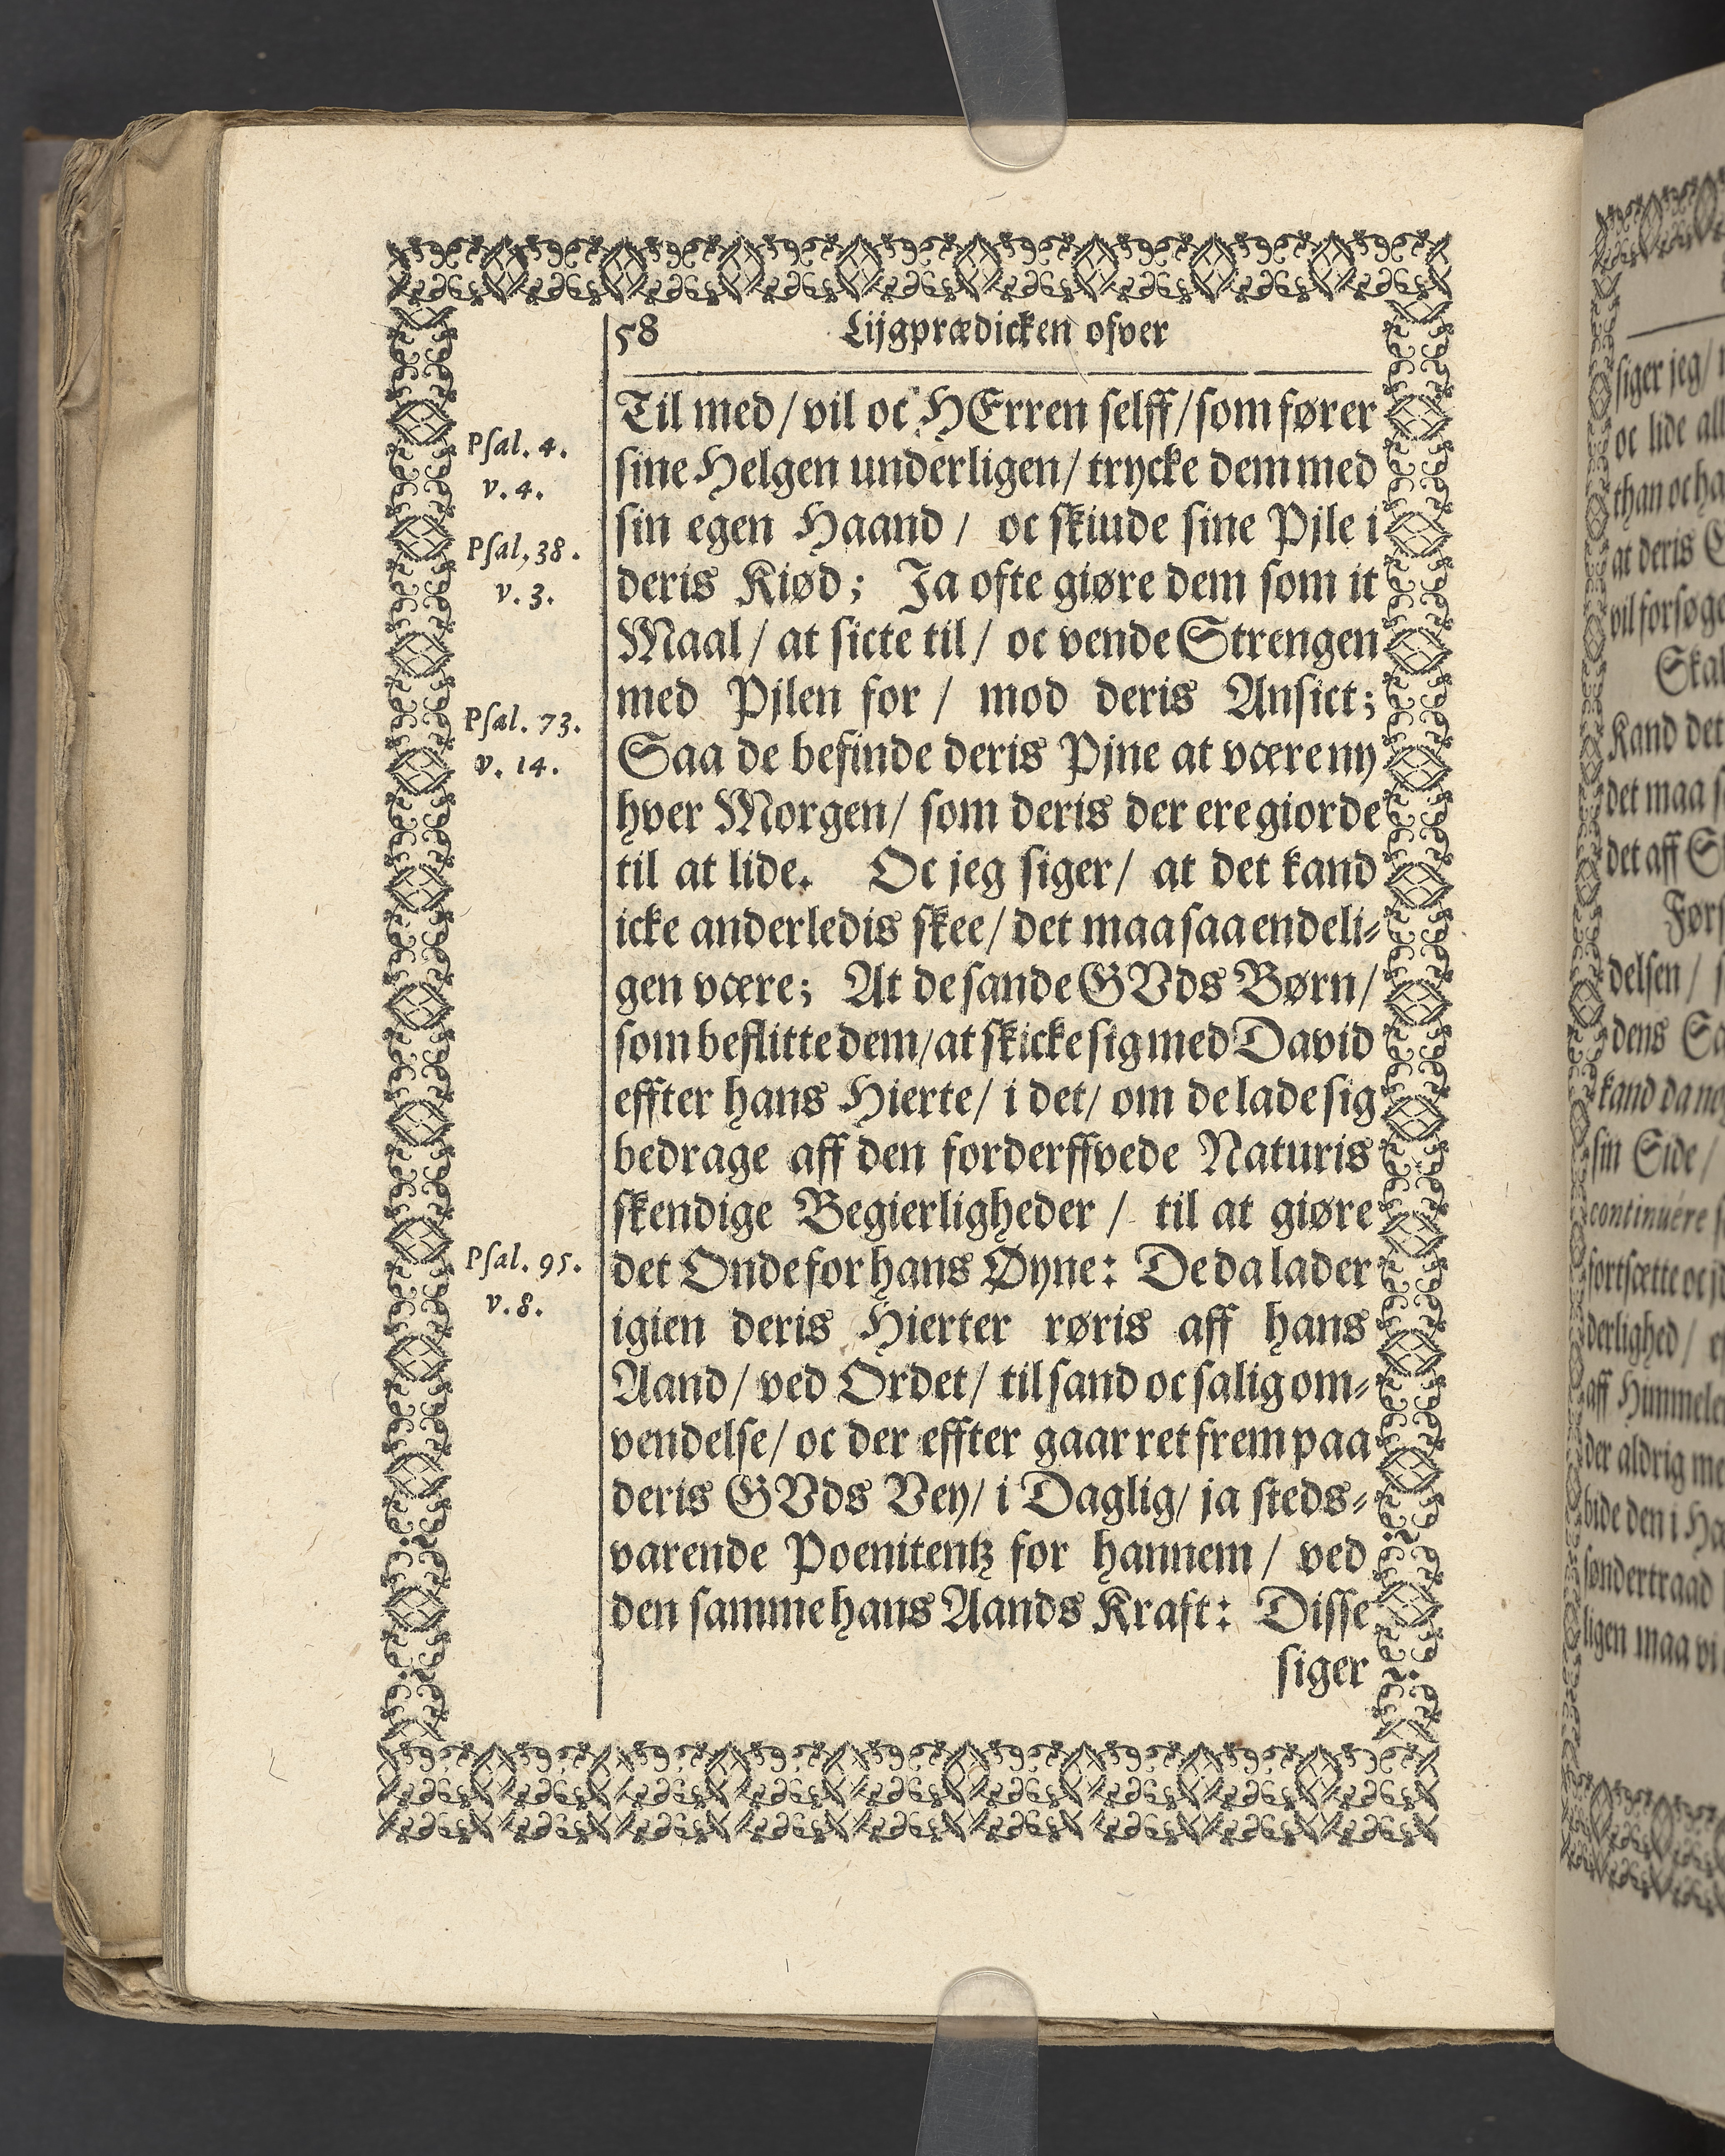 58 Lijgprædicken ofver
Til med/ vil oc HErren selff/ som fører
sine Helgen underligen/ trycke dem med
sin egen Haand/ oc skiude sine Pjle i
deris Kiød; Ja ofte giøre dem som it
Maal/ at sicte til/ oc vende Strengen
med Pjlen for/ mod deris Ansict;
Saa de befinde deris Pjne at være ny
hver Morgen/ som deris der ere giorde
til at lide. Oc jeg siger/ at det kand
icke anderledis skee/ det maa saa endeli-
gen være; At de sande GVds Børn/
som beflitte dem/ at skicke sig med David
effter hans Hierte/ i det/ om de lade sig
bedrage aff den forderffvede Naturis
skendige Begierligheder/ til at giøre
det Onde for hans Øyne: De da lader
igien deris Hierter røris aff hans
Aand/ ved Ordet/ til sand oc salig om-
vendelse/ oc der effter gaar ret frem paa
deris GVds Vey/ i Daglig/ ja steds-
varende Poenitentz for hannem/ ved
den samme hans Aands Kraft: Disse
siger
Psal. 4.
v. 4.
Psal, 38.
v. 3.
Psal. 73.
v. 14.
Psal. 95.
v. 8.
siger jeg/
oc lide all
than oc ha
at deris
vil forsøge
Skal
Kand det
det maa
det aff
delsen/
dens
kand da
sin Side/
continuére
fortsætte oc
derlighed/
aff Himmele
der aldrig me
bide den i
søndertraad
ligen maa vi